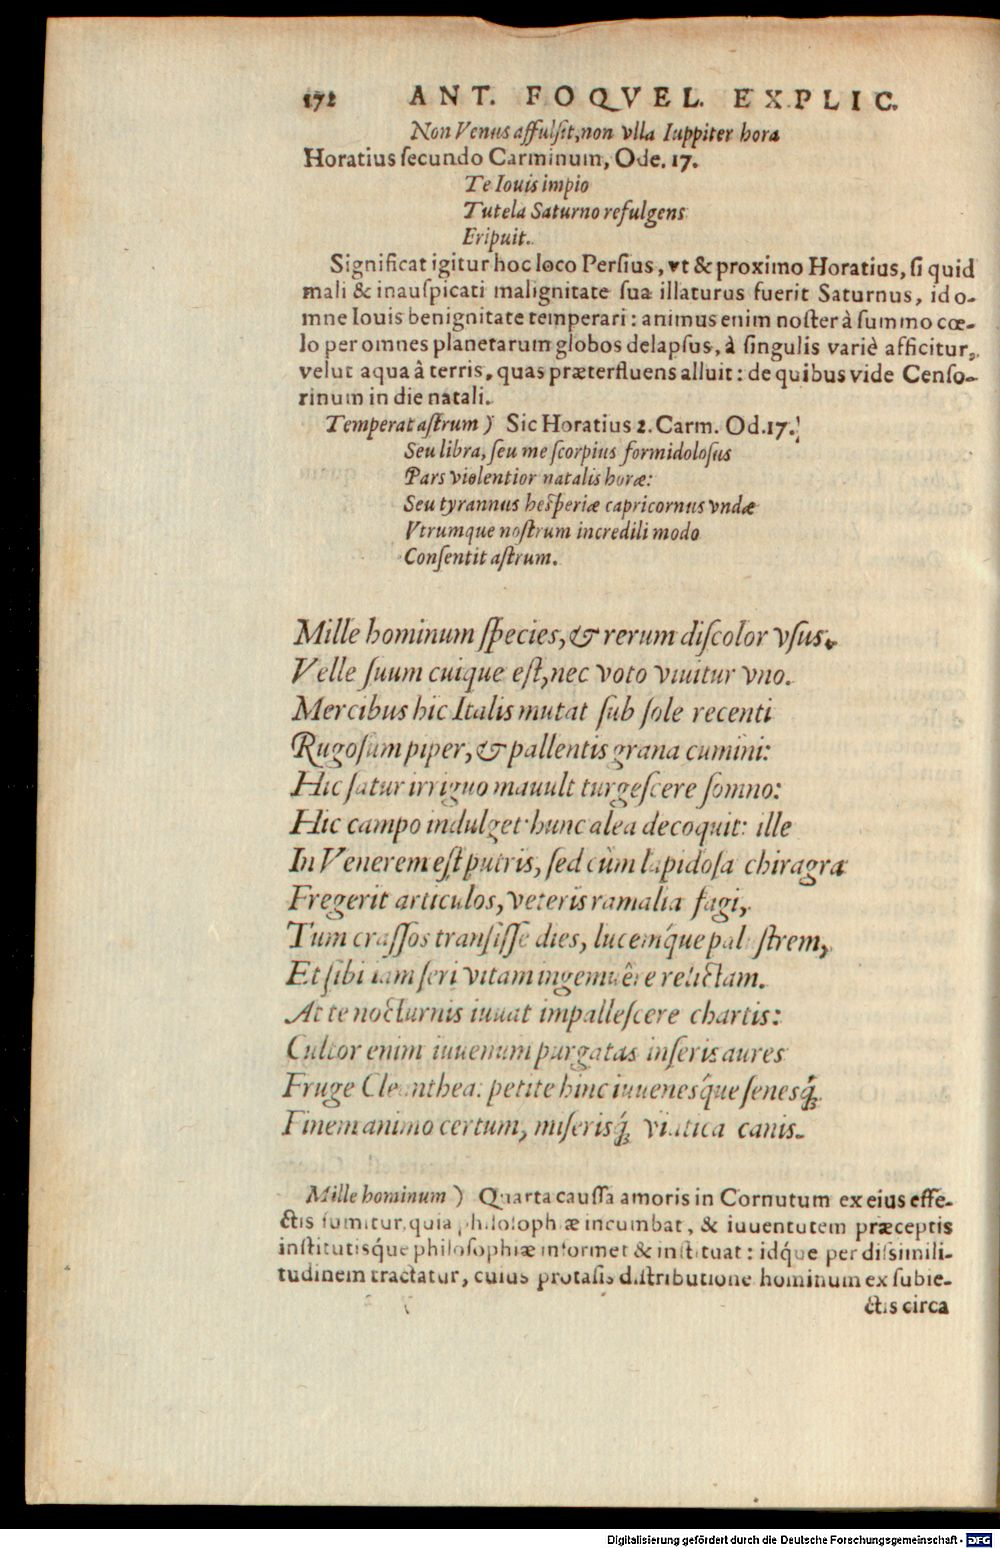 172 ANT. FOQVEL. EXPLIC.
Non Venus affulſit, non vlla Iuppiter hora
Horatius ſecundo Carminum, Ode. 17.
Te Iouis impio
Tutela Saturno refulgens
Eripuit.
Significat igitur hoc loco Perſius, vt & proximo Horatius, ſi quid
mali & inauſpicati malignitate ſua illaturus fuerit Saturnus, id o-
mne Iouis benignitate temperari: animus enim noſter à ſummo cœ-
lo per omnes planetarum globos delapſus, à ſingulis variè afficitur,
velut aqua â terris, quas præterfluens alluit: de quibus vide Cenſo-
rinum in die natali.
Temperat aſtrum ) Sic Horatius 2. Carm. Od. 17.
Seu libra, ſeu me ſcorpius formidoloſus
Pars violentior natalis horæ:
Seu tyrannus heſperiæ capricornus vndæ
Vtrumque noſtrum incredili modo
Conſentit aſtrum.
Mille hominum ſpecies, & rerum diſcolor vſus.
Velle ſuum cuique eſt, nec voto viuitur vno.
Mercibus hic Italis mutat ſub ſole recenti
Rugoſum piper, & pallentis grana cumini:
Hic ſatur irriguo mauult turgeſcere ſomno:
Hic campo indulget: hunc alea decoquit: ille
In Venerem eſt putris, ſed cùm lapidoſa chiragra
Fregerit articulos, veteris ramalia fagi,
Tum craſſos tranſiſſe dies, lucemq́ue paluſtrem,
Et ſibi iam ſeri vitam ingemuêre relictam.
At te nocturnis iuuat impalleſcere chartis:
Cultor enim iuuenum purgatas inſeris aures
Fruge Cleanthea: petite hinc iuuenesq́ue ſenesq́;
Finem animo certum, miſerisq́; viatica canis.
Mille hominum ) Quarta cauſſa amoris in Cornutum ex eius effe-
ctis ſumitur, quia philoſophiæ incumbat, & iuuentutem præceptis
inſtitutisq́ue philoſophiæ informet & inſtituat: idq́ue per diſsimili-
tudinem tractatur, cuius protaſis diſtributione hominum ex ſubie-
ctis circa
Digitalisierung gefördert durch die Deutsche Forschungsgemeinschaft - DFG